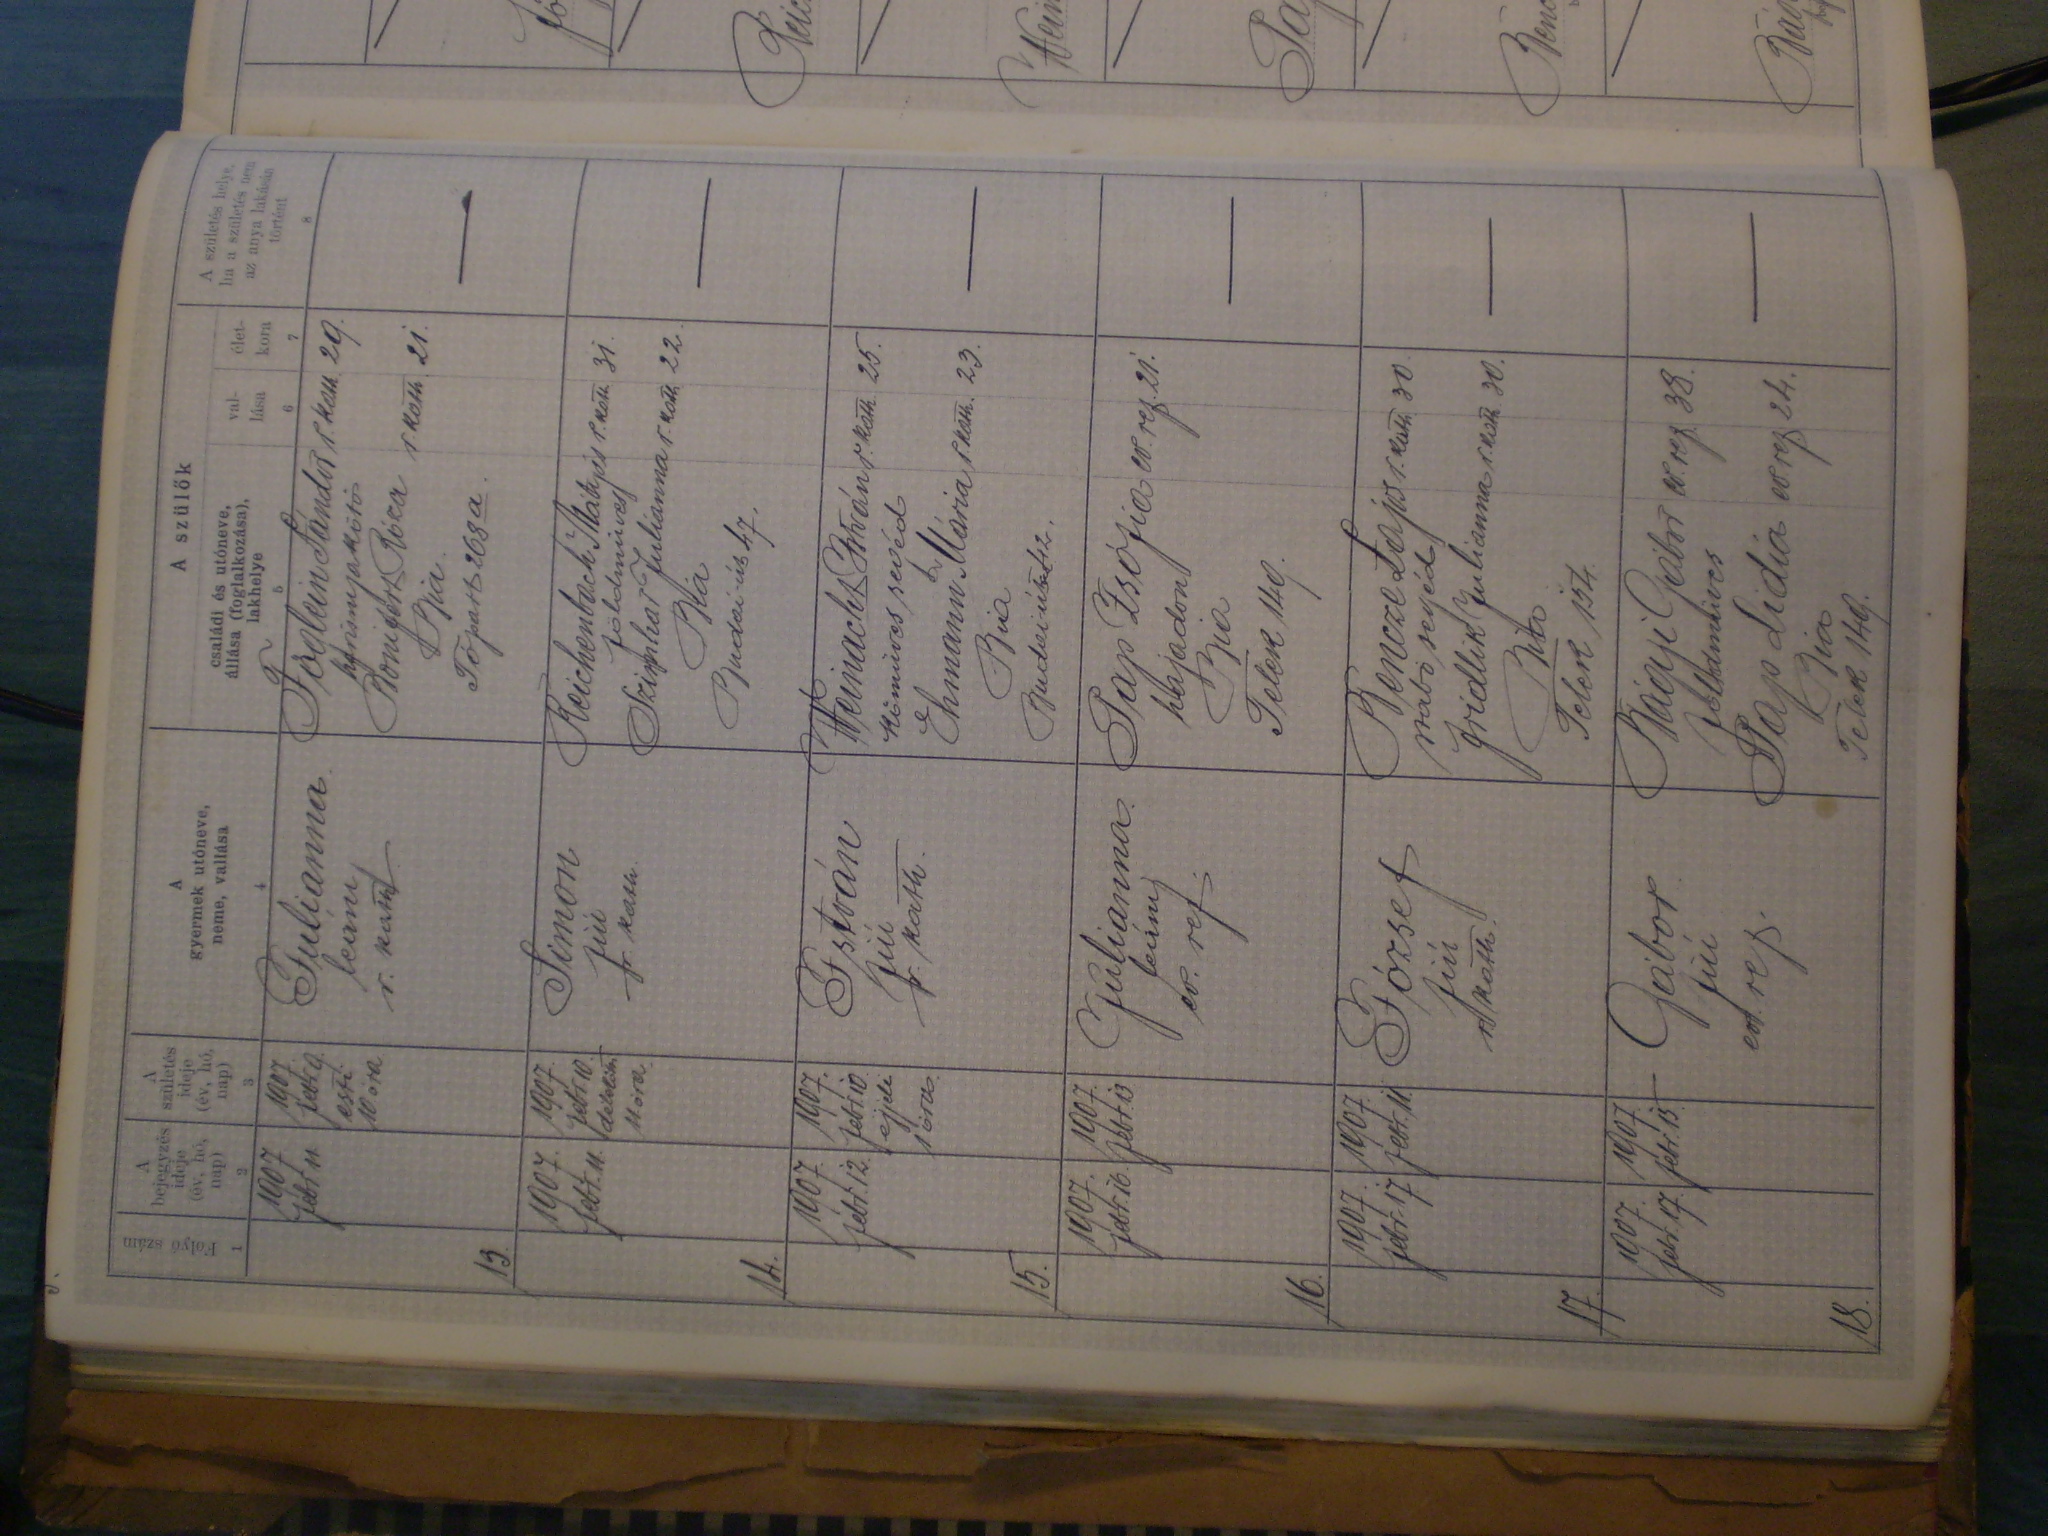 A szülők
Folyó szám
A
bejegyzés
ideje
(év, hó,
nap)
A
születés
ideje
(év, hó,
nap)
A
gyermek utóneve,
neme, vallása
családi és utóneve,
állása (foglalkozása),
lakhelye
val-
lása
élet-
kora
A születés helye,
ha a születés nem
az anya lakásán
történt
1
2
3
4
5
6
7
8
13.
1907
febr. 11.
1907.
febr. 9.
esti
10 óra
Julianna
leány
r. kath.
Föglein Sándor r. kath. 29.
Róniger Róza r. kath. 21.
Bia.
Tópart 268 a.
14.
1907.
febr. 11.
1907.
febr. 10.
délelőtt
11 óra.
Simon
fiú
r. kath.
Reichenbach Mátyás r. kath. 31.
földmíves
Julianna r. kath. 22.
Bia
Budai út 47.
15.
1907.
febr. 12.
1907.
febr. 10.
éjjeli
1 óra.
István
fiú
r. kath.
Weinacht István r. kath. 25.
kőmüves segéd
Ehmann Mária r. kath. 23.
Bia
Budai út 42.
16.
1907.
febr. 16.
1907.
febr. 13
Julianna.
leány
ev. ref.
Pap Zsófia ev. ref. 21.
hajadon
Bia
Telek 149.
17.
1907.
febr. 17
1907.
febr. 11.
József
fiú
r. kath.
Bencze Lajos r. kath. 30.
szabó segéd
Gridlik Julianna r. kath. 30.
Bia
Telek 154.
18.
1907.
febr. 17.
1907.
febr. 15
Gábor
fiú
ev. ref.
Bágyi Gábor ev. ref. 38.
földmíves
Pap Lidia ev. ref. 24.
Bia
Telek 149.